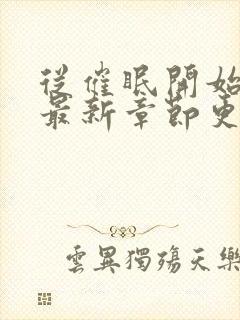 從催眠開始
最新章節更
雲異獨殤天樂